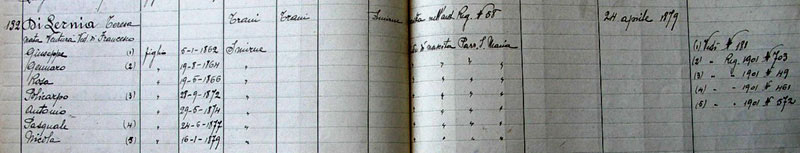 132 Di Lernia Teresa Trani Trani Smirne nell'ant. Reg. № 58 24 aprile 1879
nata Ventura Ved. di Francesco
Giuseppe (1) figlio 6-1-1862 Smirne di nascita Parr. S. Maria (1) Vedi № 181
Gennaro (2) " 19-8-1864 " " " " (2) " Reg. 1901 № 703
Rosa " 19-6-1866 " " " " (3) " " 1901 № 49
Policarpo (3) " 28-9-1872 " " " " (4) " " 1901 № 461
Antonio " 29-5-1874 " " " " (5) " " 1901 № 572
Pasquale (4) " 24-6-1877 " " " "
Nicola (5) " 16-1-1879 " " " "